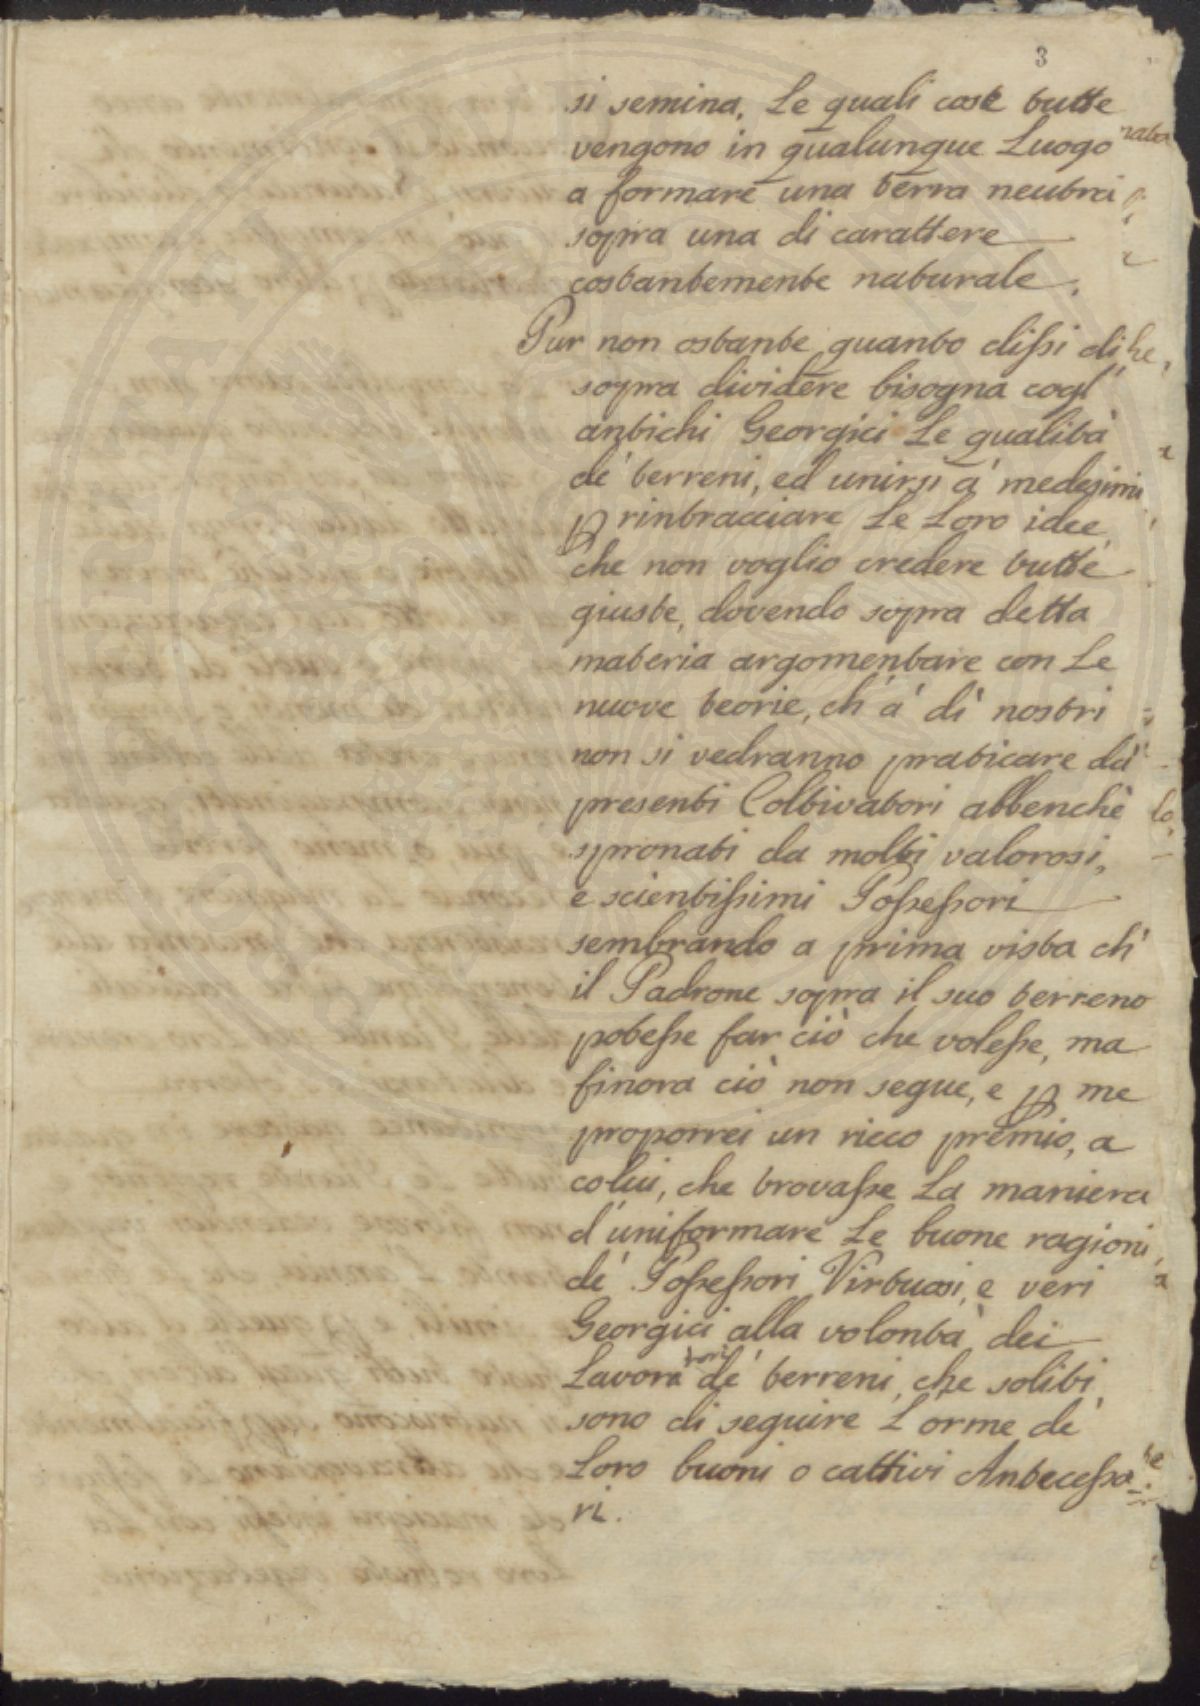 3
si semina. Le quali cose tutte
vengono in qualunque Luogo
a formare una terra neutra
sopra una di carattere
costantemente naturale.
Pur non ostante quanto dissi di
sopra dividere bisogna cogl'
antichi Georgici Le qualità
de' terreni, ed unirsi a' medesimi
ꝑ rintracciare Le Loro idee,
che non voglio credere tutte
giuste, dovendo sopra detta
materia argomentare con Le
nuove teorie, ch'a' dì nostri
non si vedranno praticare da'
presenti Coltivatori abbenchè
spronati da molti valorosi,
e scientissimi Possessori
sembrando a prima vista ch'
il Padrone sopra il suo terreno
potesse far ciò che volesse, ma
finora ciò non segue, e ꝑ me
proporrei un ricco premio, a
colui, che trovasse La maniera
d'uniformare Le buone ragioni
de' Possessori Virtuosi, e veri
Georgici alla volontà dei
Lavoratori de' terreni, che soliti
sono di seguire L'orme de'
Loro buoni o cattivi Antecesso=
ri.